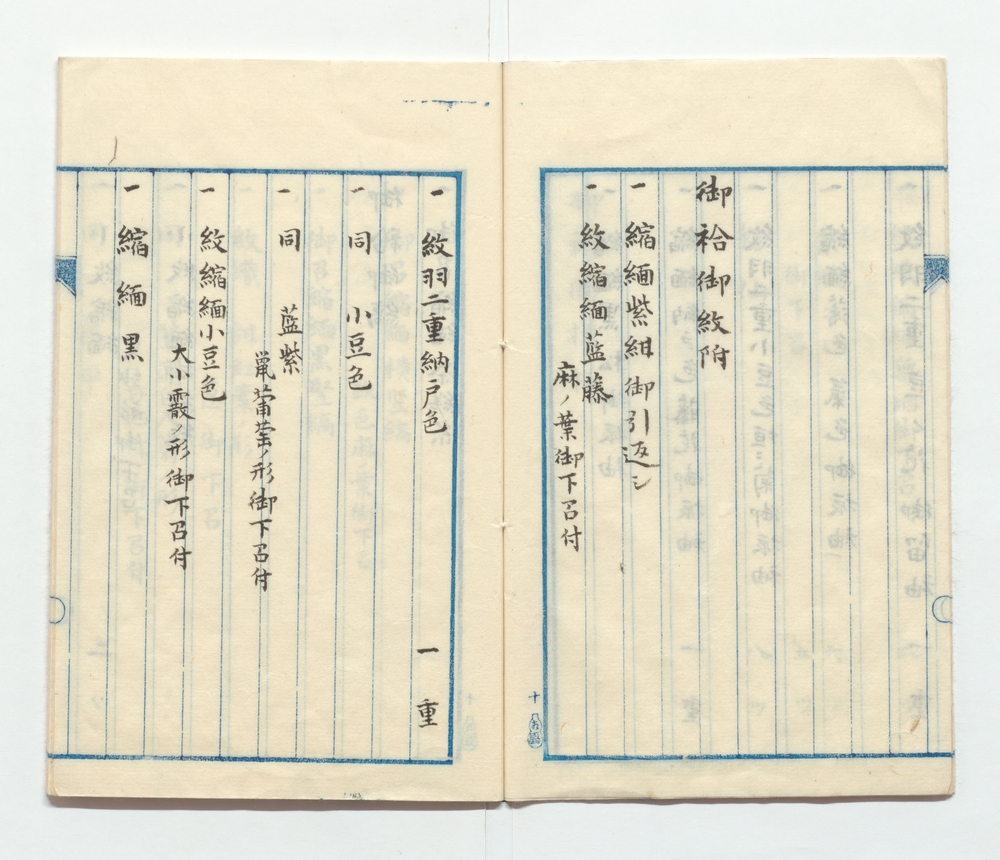 御袷御紋附
一 縮緬紫紺御引返シ
一 紋縮緬藍藤
麻ノ葉御下召付
一 紋羽二重納戸色 一重
一 同 小豆色
一 同 藍紫
ノ形御下召付
一 紋縮緬小豆色
大小霰ノ形御下召付
一 縮緬黒
十